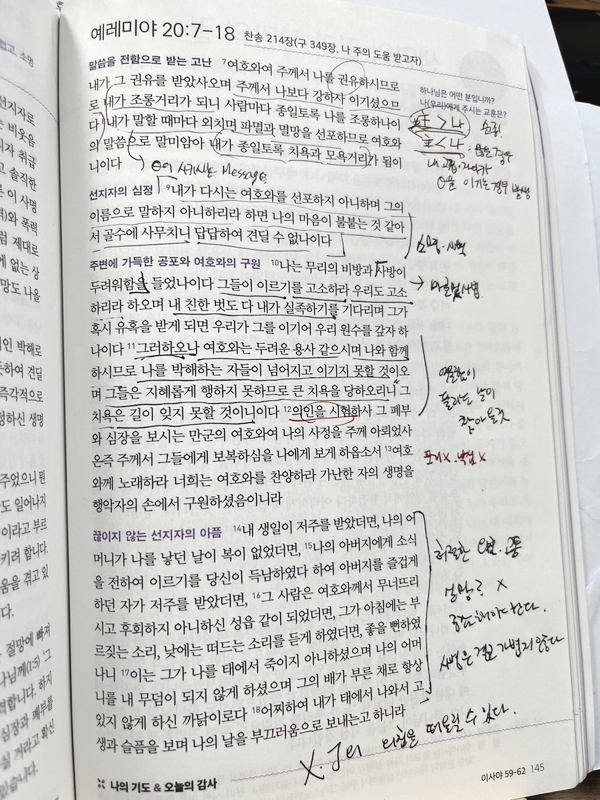 예레미야 20:7-18 찬송 214장(구 349장, 나 주의 도움 받고자)
말씀을 전함으로 받는 고난 7여호와여 주께서 나를 권유하시므로
내가 그 권유를 받았사오며 주께서 나보다 강하사 이기셨으므
로 내가 조롱거리가 되니 사람마다 종일토록 나를 조롱하나이
다 8내가 말할 때마다 외치며 파멸과 멸망을 선포하므로 여호와
의 말씀으로 말미암아 내가 종일토록 치욕과 모욕거리가 됨이
니이다
Message
선지자의 심정 9내가 다시는 여호와를 선포하지 아니하며 그의
이름으로 말하지 아니하리라 하면 나의 마음이 불붙는 것 같아
서 골수에 사무치니 답답하여 견딜 수 없나이다
주변에 가득한 공포와 여호와의 구원 10나는 무리의 비방과 사방이
두려워함을 들었나이다 그들이 이르기를 고소하라 우리도 고소
하리라 하오며 내 친한 벗도 다 내가 실족하기를 기다리며 그가
혹시 유혹을 받게 되면 우리가 그를 이기어 우리 원수를 갚자 하
나이다 11그러하오나 여호와는 두려운 용사 같으시며 나와 함께
하시므로 나를 박해하는 자들이 넘어지고 이기지 못할 것이오
며 그들은 지혜롭게 행하지 못하므로 큰 치욕을 당하오리니 그
치욕은 길이 잊지 못할 것이니이다 12의인을 시험하사 그 폐부
와 심장을 보시는 만군의 여호와여 나의 사정을 주께 아뢰었사
온즉 주께서 그들에게 보복하심을 나에게 보게 하옵소서 13여호
와께 노래하라 너희는 여호와를 찬양하라 가난한 자의 생명을
행악자의 손에서 구원하셨음이니라
끊이지 않는 선지자의 아픔 14내 생일이 저주를 받았더면, 나의 어
머니가 나를 낳던 날이 복이 없었더면, 15나의 아버지에게 소식
을 전하여 이르기를 당신이 득남하였다 하여 아버지를 즐겁게
하던 자가 저주를 받았더면, 16그 사람은 여호와께서 무너뜨리
시고 후회하지 아니하신 성읍 같이 되었더면, 그가 아침에는 부
르짖는 소리, 낮에는 떠드는 소리를 듣게 하였더면, 좋을 뻔하였
나니 17이는 그가 나를 태에서 죽이지 아니하셨으며 나의 어머
니를 내 무덤이 되지 않게 하셨으며 그의 배가 부른 채로 항상
있지 않게 하신 까닭이로다 18어찌하여 내가 태에서 나와서 고
생과 슬픔을 보며 나의 날을 부끄러움으로 보내는고 하니라
나의 기도 & 오늘의 감사
이사야 59-62 145
하나님은 어떤 분입니까?
나(우리)에게 주시는 교훈은?
主 > 나 순리
主 < 나
절망은 X
사명은 결코 가볍지 않다
떠올릴 수 있다.
선지자로
는 비웃음
이자 취급
고 솔직한
른 이 사명
역)와 폭력
럼 제대로
게 없는 상
망도 나올
인 박해로
듯하여 견딜
즉각적으로
정하신 생명
주었으니 뭔
라도 일어나지
이라고 부르
키려 합니다.
움을 겪고 있
다.
절망에 빠져
심장과 폐부를